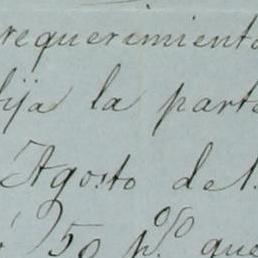 requerimiento
fija la parte
Agosto del
50 p% que